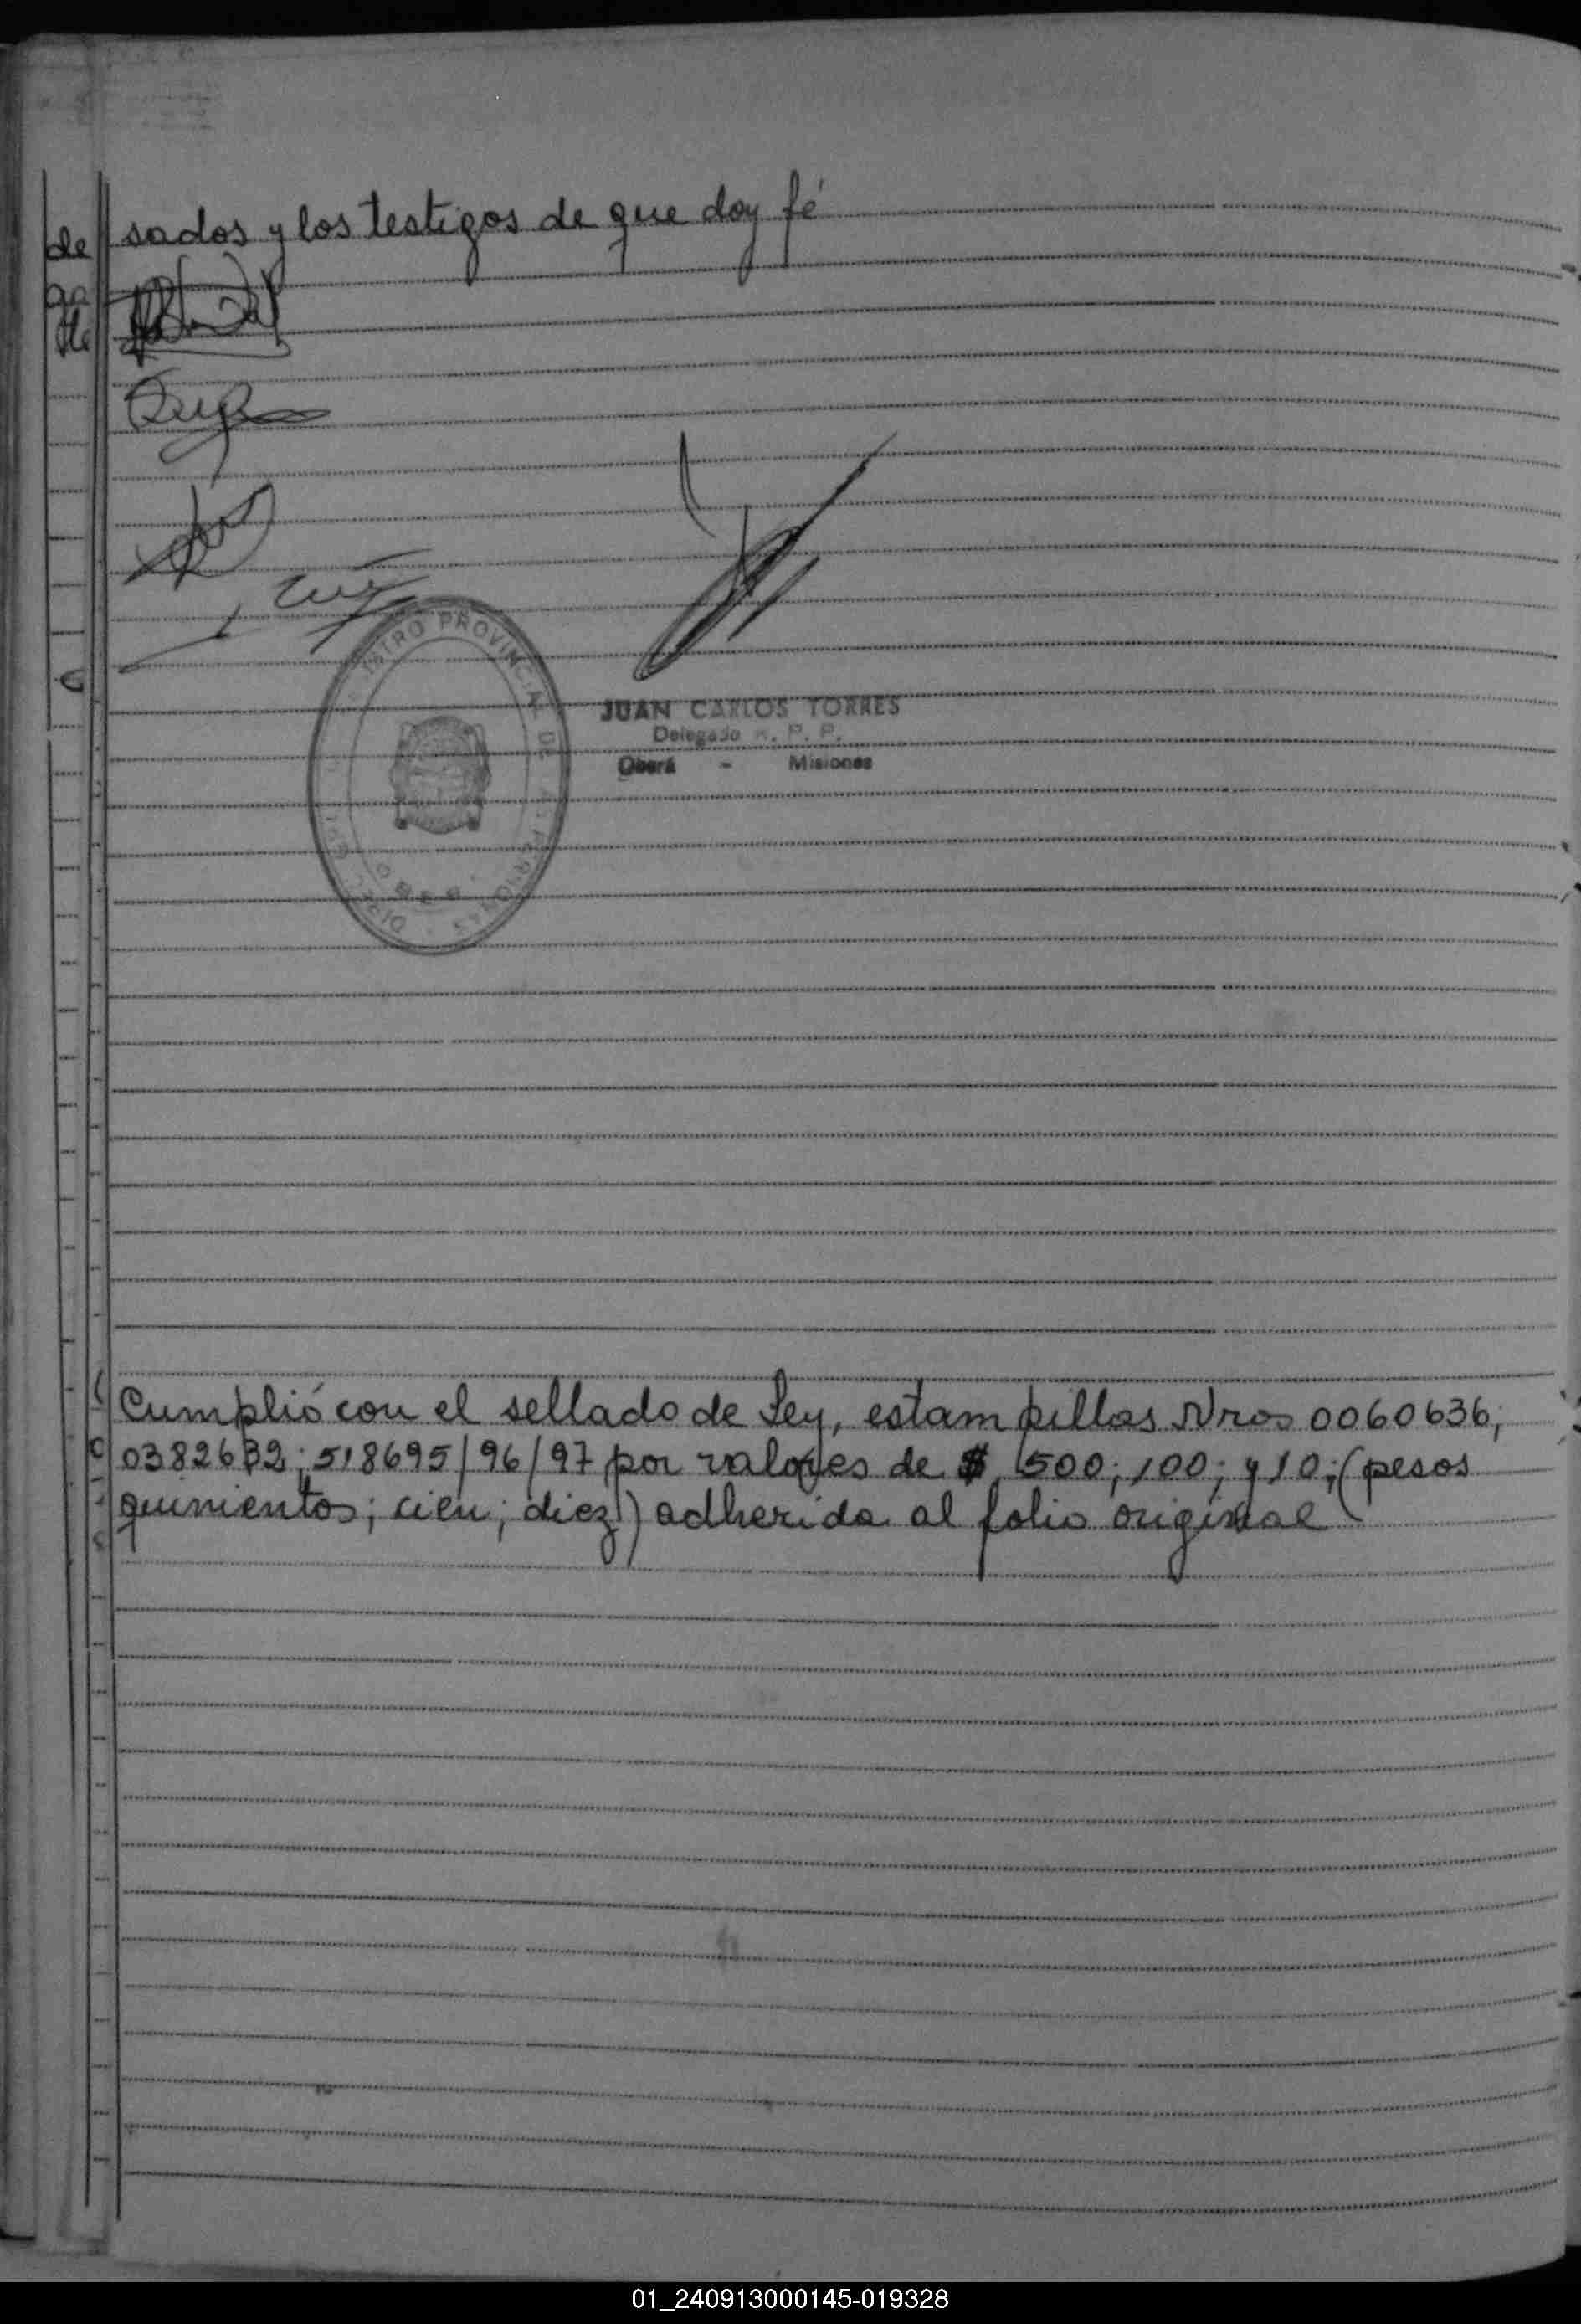 sados y los testigos de que doy fé
JUAN CARLOS TORRES
Delegado R. P. P.
Oberá - Misiones
Cumplió con el sellado de Ley, estampillas Nros 0060636;
0382632; 518695/96/97 por valores de $ 500; 100; y 10; (pesos
quinientos; cien; diez) adherida al folio original
01_240913000145-019328